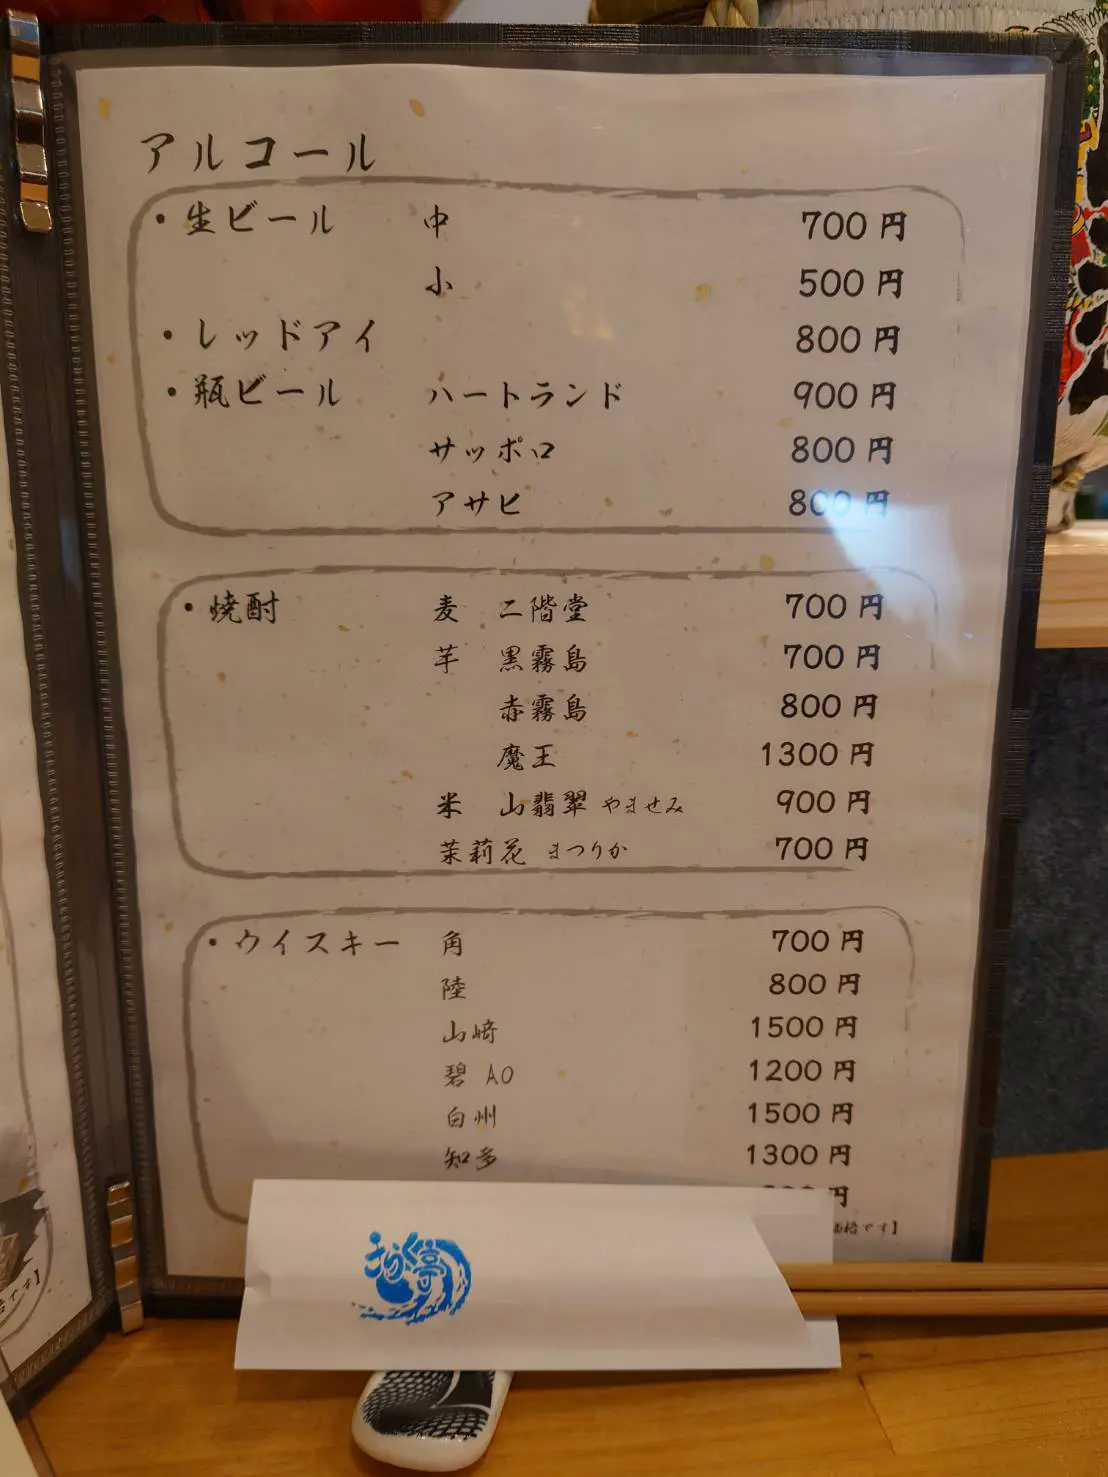 アルコール
・生ビール 中 700 円
小 500 円
・レッドアイ 800 円
・瓶ビール ハートランド 900 円
サッポロ 800 円
アサヒ 800 円
・焼酎 麦 二階堂 700 円
芋 黒霧島 700 円
赤霧島 800 円
魔王 1300 円
米 山翡翠 やませみ 900 円
茉莉花 まつりか 700 円
・ウイスキー 角 700 円
陸 800 円
山崎 1500 円
碧 AO 1200 円
白州 1500 円
知多 1300 円
円
価格です】